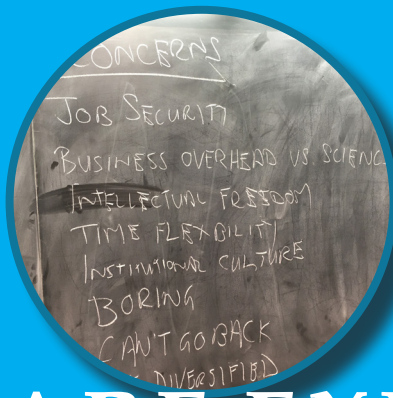 CONCERNS
JOB SECURITY
BUSINESS OVERHEAD VS. SCIENC
INTELLECTUAL FREEDOM
TIME FLEXBILITY
INSTITUTIONAL CULTURE
BORING
CAN'T GO BACK
DIVERSIFIED